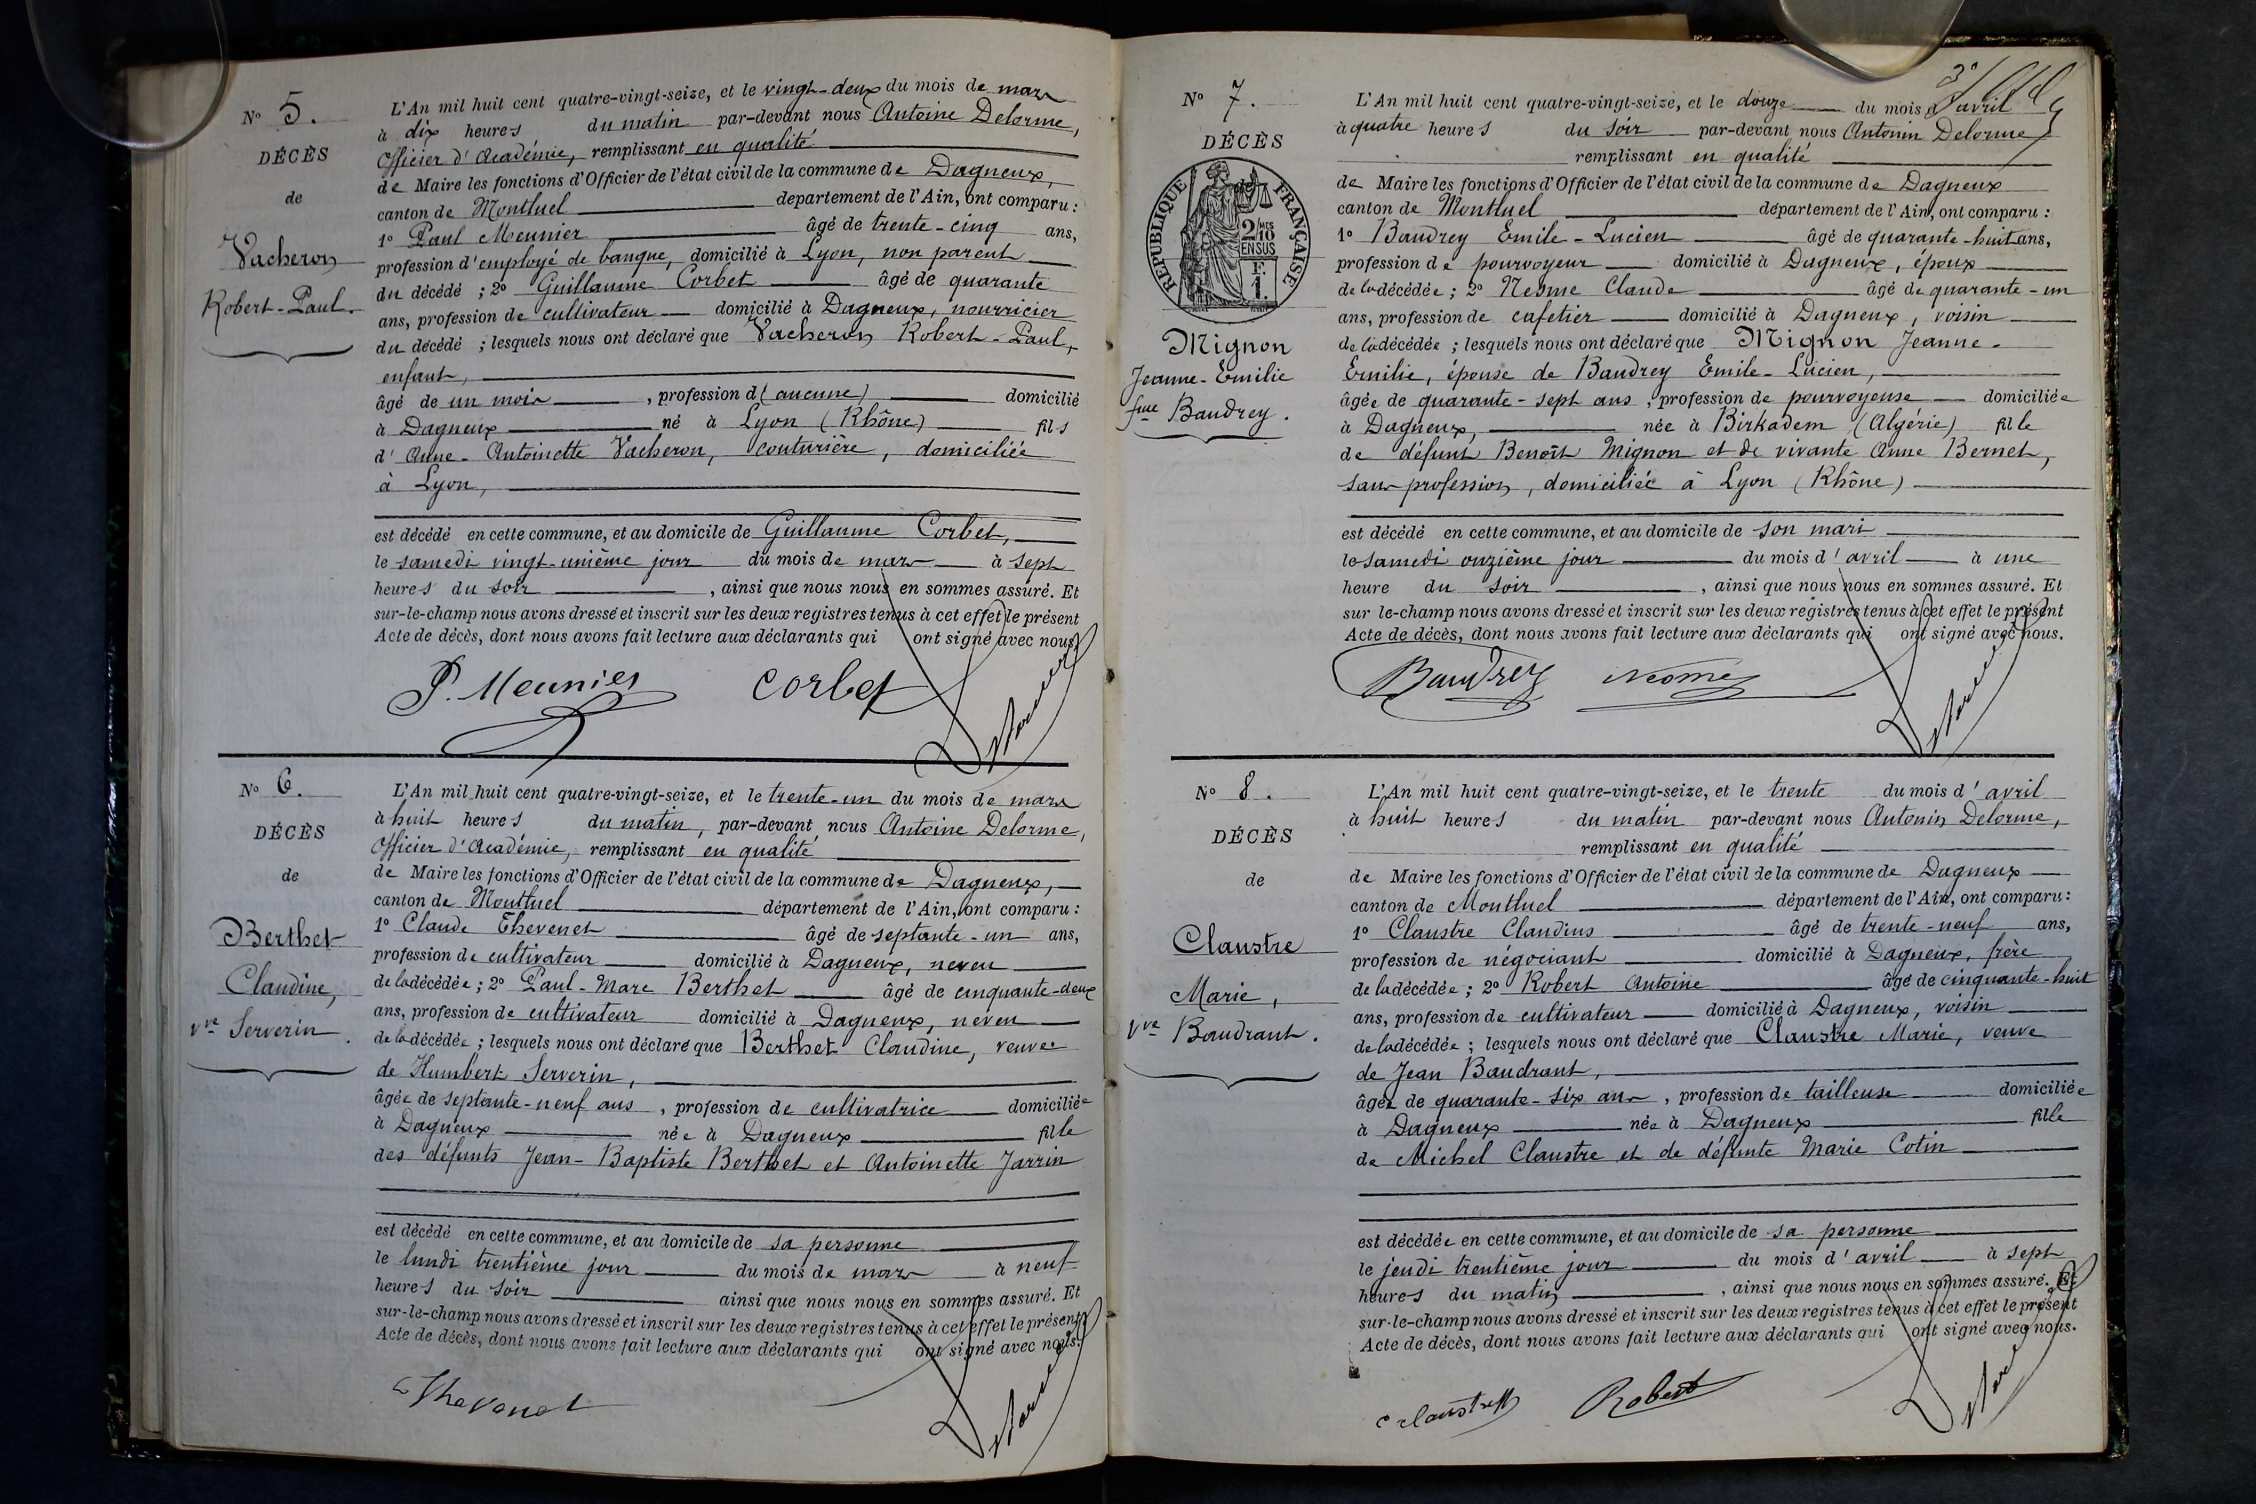 N° 5.
DÉCÈS
de
Vacheron
Robert-Paul.
L'An mil huit cent quatre-vingt-seize, et le vingt-deux du mois de mars
à dix heures du matin par-devant nous Antoine Delorme,
Officier d'Académie, remplissant en qualité
de Maire les fonctions d'Officier de l'état civil de la commune de Dagneux,
canton de Montluel département de l'Ain, ont comparu :
1° Paul Meunier âgé de trente-cinq ans,
profession d'employé de banque, domicilié à Lyon, non parent
du décédé ; 2° Guillaume Corbet âgé de quarante
ans, profession de cultivateur domicilié à Dagneux, nourricier
du décédé ; lesquels nous ont déclaré que Vacheron Robert-Paul,
enfant,
âgé de un mois , profession d (aucune) domicilié
à Dagneux né à Lyon (Rhône) fils
d'Anne-Antoinette Vacheron, couturière, domiciliée
à Lyon,
est décédé en cette commune, et au domicile de Guillaume Corbet,
le samedi vingt-unième jour du mois de mars à sept
heures du soir , ainsi que nous nous en sommes assuré. Et
sur-le-champ nous avons dressé et inscrit sur les deux registres tenus à cet effet le présent
Acte de décès, dont nous avons fait lecture aux déclarants qui ont signé avec nous.
P. Meunier Corbet Delorme
N° 6.
DÉCÈS
de
Berthet
Claudine,
Vve Serverin.
L'An mil huit cent quatre-vingt-seize, et le trente-un du mois de mars
à huit heures du matin, par-devant nous Antoine Delorme,
Officier d'Académie, remplissant en qualité
de Maire les fonctions d'Officier de l'état civil de la commune de Dagneux,
canton de Montluel département de l'Ain, ont comparu :
1° Claude Thevenet âgé de septante-un ans,
profession de cultivateur domicilié à Dagneux, neveu
de la décédée ; 2° Paul-Marc Berthet âgé de cinquante-deux
ans, profession de cultivateur domicilié à Dagneux, neveu
de la décédée ; lesquels nous ont déclaré que Berthet Claudine, veuve
de Humbert Serverin,
âgée de septante-neuf ans , profession de cultivatrice domiciliée
à Dagneux née à Dagneux fille
des défunts Jean-Baptiste Berthet et Antoinette Jarrin
est décédé en cette commune, et au domicile de sa personne
le lundi trentième jour du mois de mars à neuf
heures du soir ainsi que nous nous en sommes assuré. Et
sur-le-champ nous avons dressé et inscrit sur les deux registres tenus à cet effet le présent
Acte de décès, dont nous avons fait lecture aux déclarants qui ont signé avec nous.
Thevenet Delorme
3°
N° 7.
DÉCÈS
RÉPUBLIQUE FRANÇAISE
2/10MES
EN SUS
F.
1.
Mignon
Jeanne-Emilie
fme Baudrey.
L'An mil huit cent quatre-vingt-seize, et le douze du mois d'avril
à quatre heures du soir par-devant nous Antonin Delorme
remplissant en qualité
de Maire les fonctions d'Officier de l'état civil de la commune de Dagneux
canton de Montluel département de l'Ain, ont comparu :
1° Baudrey Emile-Lucien âgé de quarante-huit ans,
profession de pourvoyeur domicilié à Dagneux, époux
de la décédée ; 2° Nesme Claude âgé de quarante-un
ans, profession de cafetier domicilié à Dagneux, voisin
de la décédée ; lesquels nous ont déclaré que Mignon Jeanne-
Emilie, épouse de Baudrey Emile-Lucien,
âgée de quarante-sept ans , profession de pourvoyeuse domiciliée
à Dagneux, née à Birkadem (Algérie) fille
de défunt Benoît Mignon et de vivante Anne Bernet,
sans profession, domiciliée à Lyon (Rhône)
est décédé en cette commune, et au domicile de son mari
le samedi onzième jour du mois d'avril à une
heure du soir , ainsi que nous nous en sommes assuré. Et
sur le-champ nous avons dressé et inscrit sur les deux registres tenus à cet effet le présent
Acte de décès, dont nous avons fait lecture aux déclarants qui ont signé avec nous.
Baudrey Nesme Delorme
N° 8.
DÉCÈS
de
Claustre
Marie,
Vve Baudrant.
L'An mil huit cent quatre-vingt-seize, et le trente du mois d'avril
à huit heures du matin par-devant nous Antonin Delorme,
remplissant en qualité
de Maire les fonctions d'Officier de l'état civil de la commune de Dagneux
canton de Montluel département de l'Ain, ont comparu :
1° Claustre Claudius âgé de trente-neuf ans,
profession de négociant domicilié à Dagneux, frère
de la décédée ; 2° Robert Antoine âgé de cinquante-huit
ans, profession de cultivateur domicilié à Dagneux, voisin
de la décédée ; lesquels nous ont déclaré que Claustre Marie, veuve
de Jean Baudrant,
âgée de quarante-six ans , profession de tailleuse domiciliée
à Dagneux née à Dagneux fille
de Michel Claustre et de défunte Marie Cotin
est décédée en cette commune, et au domicile de sa personne
le jeudi trentième jour du mois d'avril à sept
heures du matin , ainsi que nous nous en sommes assuré. Et
sur-le-champ nous avons dressé et inscrit sur les deux registres tenus à cet effet le présent
Acte de décès, dont nous avons fait lecture aux déclarants qui ont signé avec nous.
C Claustre Robert Delorme